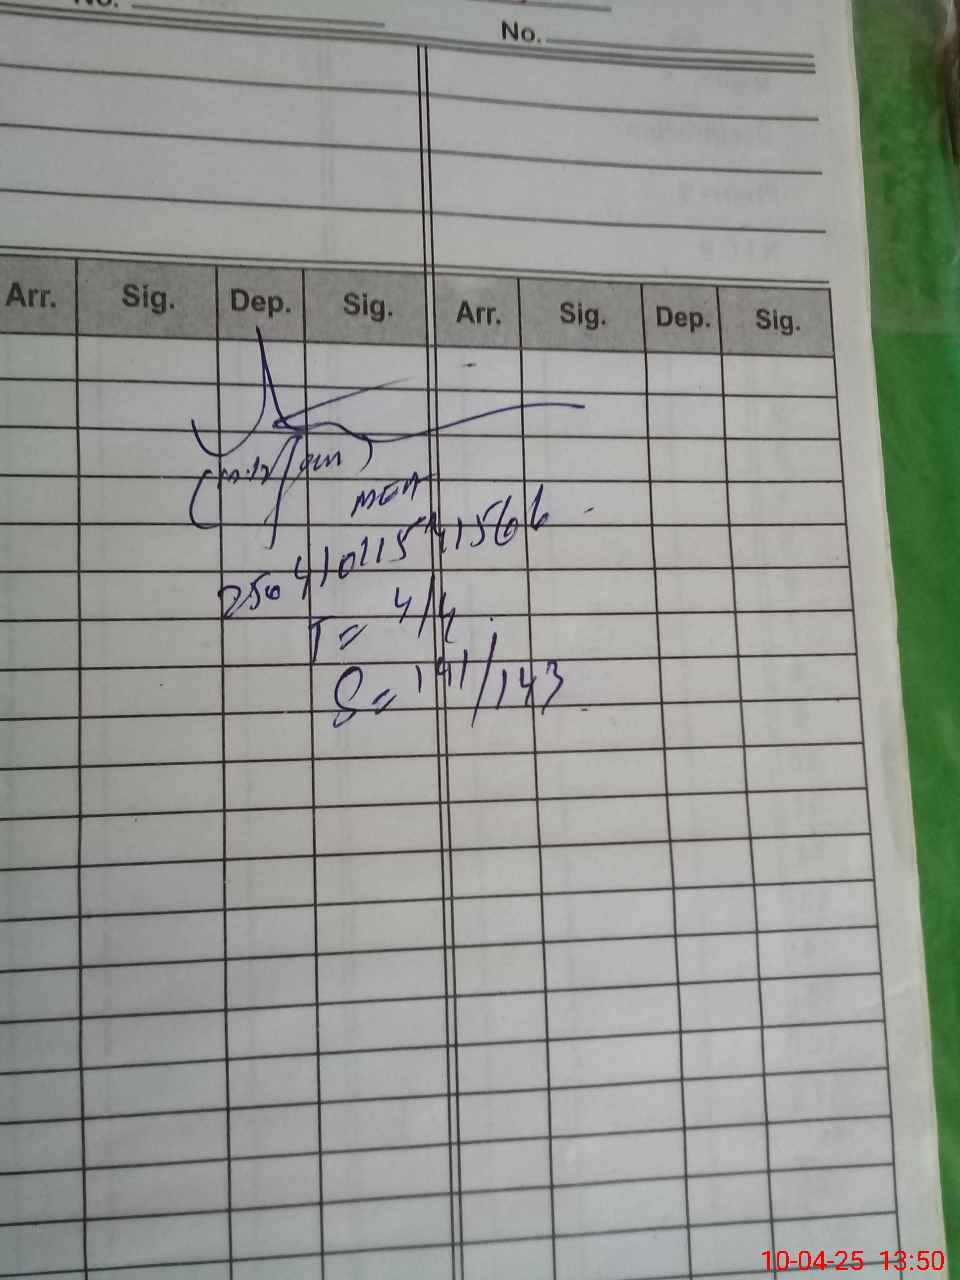 No.
No.
Arr. Sig. Dep. Sig. Arr. Sig. Dep. Sig.
MEA
250410115141566
T= 4/4
S= 141/143
10-04-25 13:50